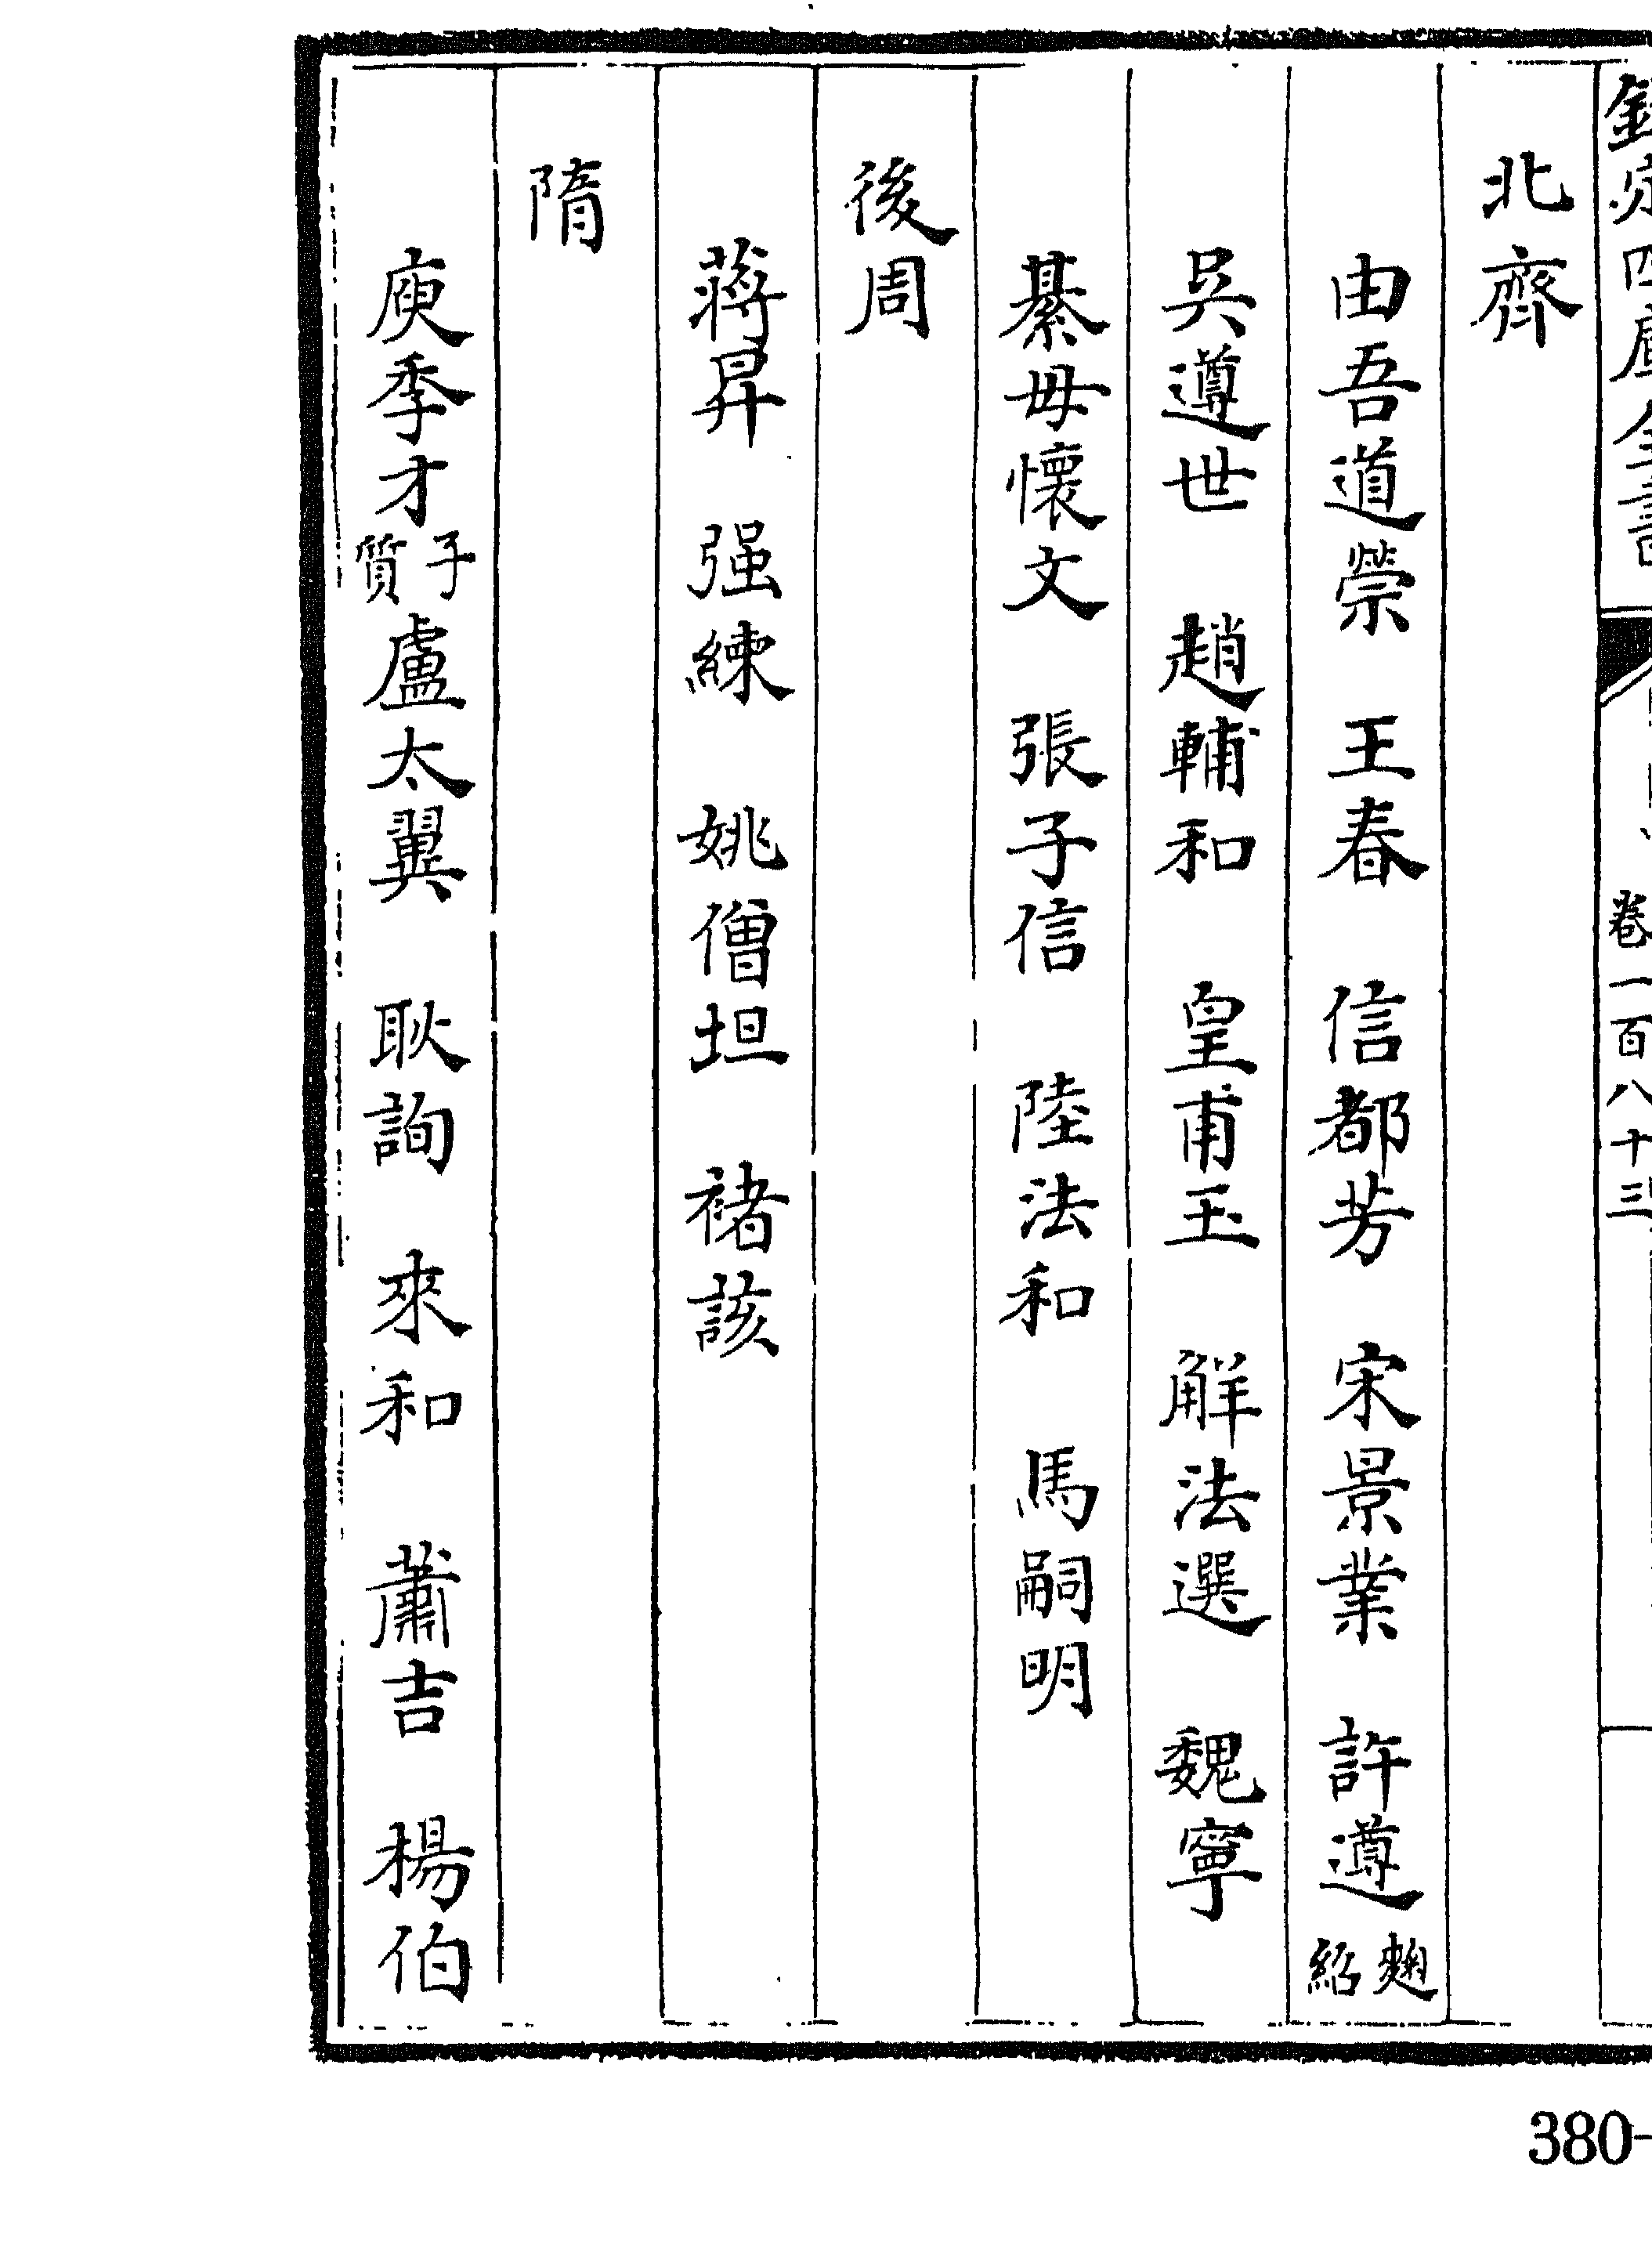 欽定四庫全書
卷一百八十三
北齊
由吾道榮　王春　信都芳　宋景業　許遵麴紹
吳遵世　趙輔和　皇甫玉　解法選　魏寧
綦毋懷文　張子信　陸法和　馬嗣明
後周
蔣昇　强練　姚僧坦　褚該
隋
庾季才子質盧太翼　耿詢　來和　蕭吉　楊伯
380-